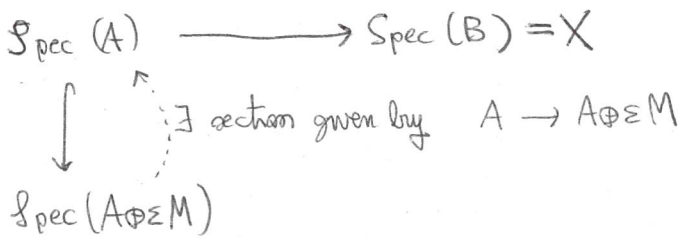 Spec (A) ⟶ Spec (B) = X
∃ section given by A → A⊕εM
Spec(A⊕εM)